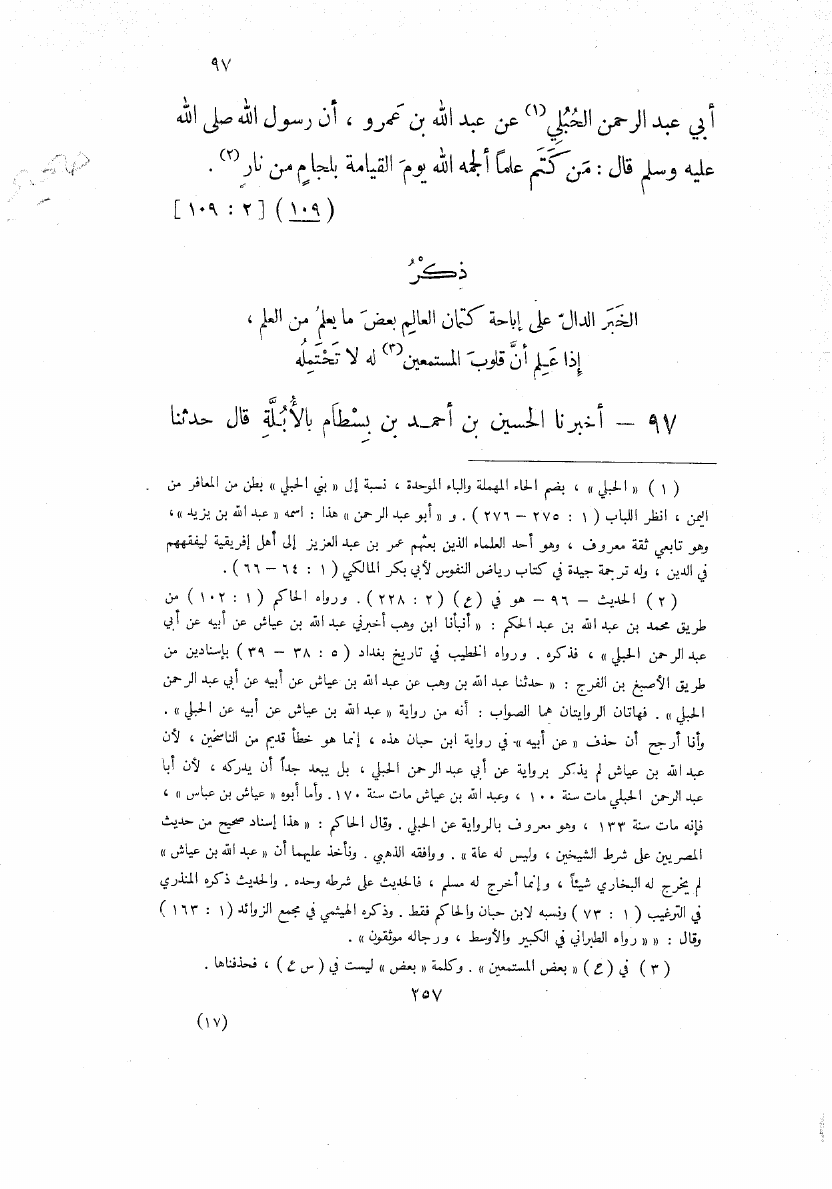 ٩٧
أبي عبد الرحمن الحُبُلي(١) عن عبد الله بن عَمرو ، أن رسول الله صلى الله
عليه وسلم قال : مَن كَتَم علماً ألجمه الله يومَ القيامة بلجامٍ من نارٍ(٢) .
(١٠٩) [٢ : ١٠٩]
ذِكْرُ
الخَبَر الدالّ على إباحة كتمان العالِم بعضَ ما يعلمُ من العلم ،
إذا عَلِم أنَّ قلوبَ المستمعين(٣) له لا تَحْتَمِلُه
٩٧ – أخبرنا الحسين بن أحمد بن بِسْطام بالأُبُلَّةِ قال حدثنا
(١) « الحبلي » ، بضم الحاء المهملة والباء الموحدة ، نسبة إلى « بني الحبلي » بطن من المعافر من
اليمن ، انظر اللباب (١ : ٢٧٥ – ٢٧٦) . و « أبو عبد الرحمن » هذا : اسمه « عبد الله بن يزيد » ،
وهو تابعي ثقة معروف ، وهو أحد العلماء الذين بعثهم عمر بن عبد العزيز إلى أهل إفريقية ليفقههم
في الدين ، وله ترجمة جيدة في كتاب رياض النفوس لأبي بكر المالكي (١ : ٦٤ – ٦٦) .
(٢) الحديث – ٩٦ – هو في (ع) (٢ : ٢٢٨) . ورواه الحاكم (١ : ١٠٢) من
طريق محمد بن عبد الله بن عبد الحكم : « أنبأنا ابن وهب أخبرني عبد الله بن عياش عن أبيه عن أبي
عبد الرحمن الحبلي » ، فذكره . ورواه الخطيب في تاريخ بغداد (٥ : ٣٨ – ٣٩) بإسنادين من
طريق الأصبغ بن الفرج : « حدثنا عبد الله بن وهب عن عبد الله بن عياش عن أبيه عن أبي عبد الرحمن
الحبلي » . فهاتان الروايتان هما الصواب : أنه من رواية « عبد الله بن عياش عن أبيه عن الحبلي » .
وأنا أرجح أن حذف « عن أبيه » في رواية ابن حبان هذه ، إنما هو خطأ قديم من الناسخين ، لأن
عبد الله بن عياش لم يذكر برواية عن أبي عبد الرحمن الحبلي ، بل يبعد جداً أن يدركه ، لأن أبا
عبد الرحمن الحبلي مات سنة ١٠٠ ، وعبد الله بن عياش مات سنة ١٧٠ . وأما أبوه « عياش بن عباس » ،
فإنه مات سنة ١٣٣ ، وهو معروف بالرواية عن الحبلي . وقال الحاكم : « هذا إسناد صحيح من حديث
المصريين على شرط الشيخين ، وليس له علة » . ووافقه الذهبي . ونأخذ عليهما أن « عبد الله بن عياش »
لم يخرج له البخاري شيئاً ، وإنما أخرج له مسلم ، فالحديث على شرطه وحده . والحديث ذكره المنذري
في الترغيب (١ : ٧٣) ونسبه لابن حبان والحاكم فقط . وذكره الهيثمي في مجمع الزوائد (١ : ١٦٣)
وقال : « « رواه الطبراني في الكبير والأوسط ، ورجاله موثقون » .
(٣) في (ح) « بعض المستمعين » . وكلمة « بعض » ليست في (س ع) ، فحذفناها .
٢٥٧
(١٧)